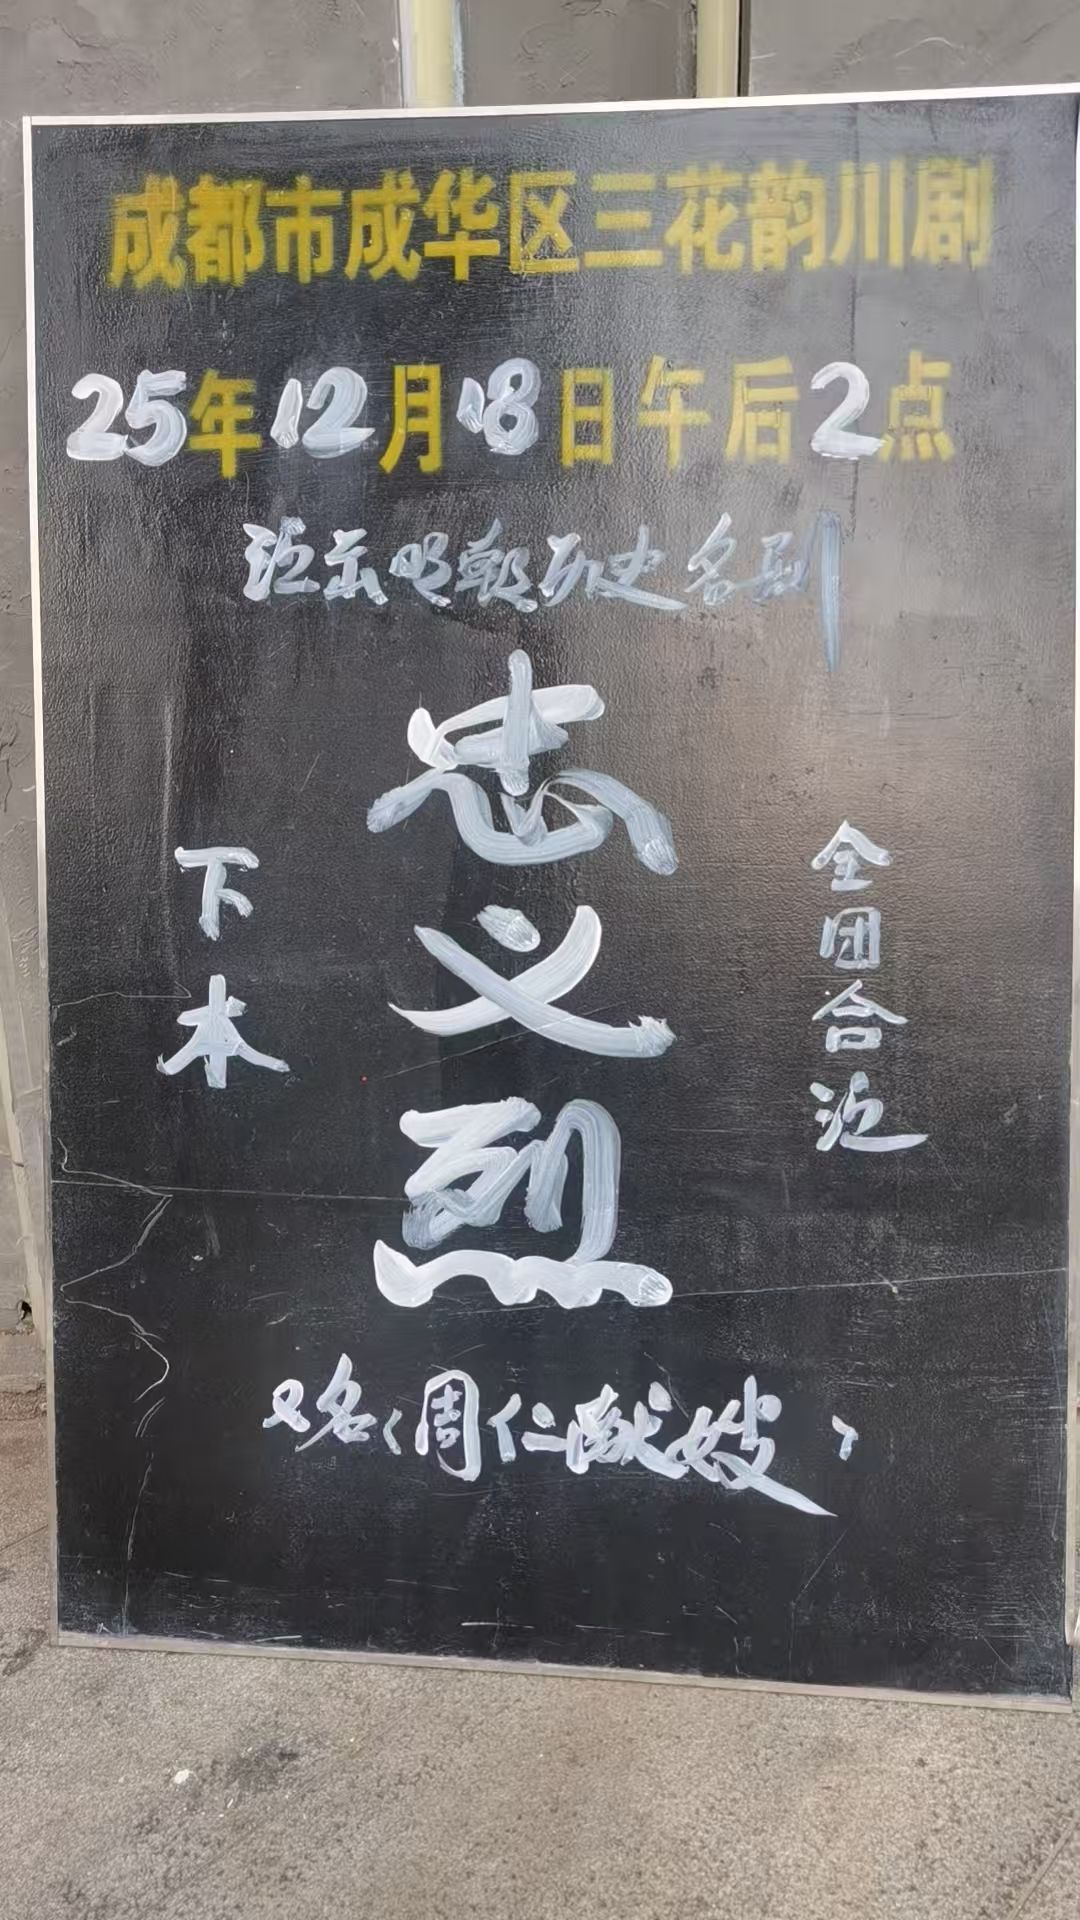 成都市成华区三花韵川剧
25年12月18日午后2点
演出明朝历史名剧
忠义烈
下本
全团合演
又名《周仁献嫂》